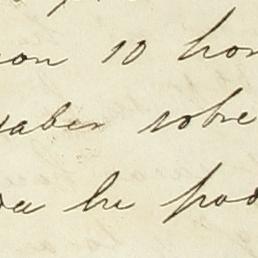 son 10 hor
saber sobre
oa he pod